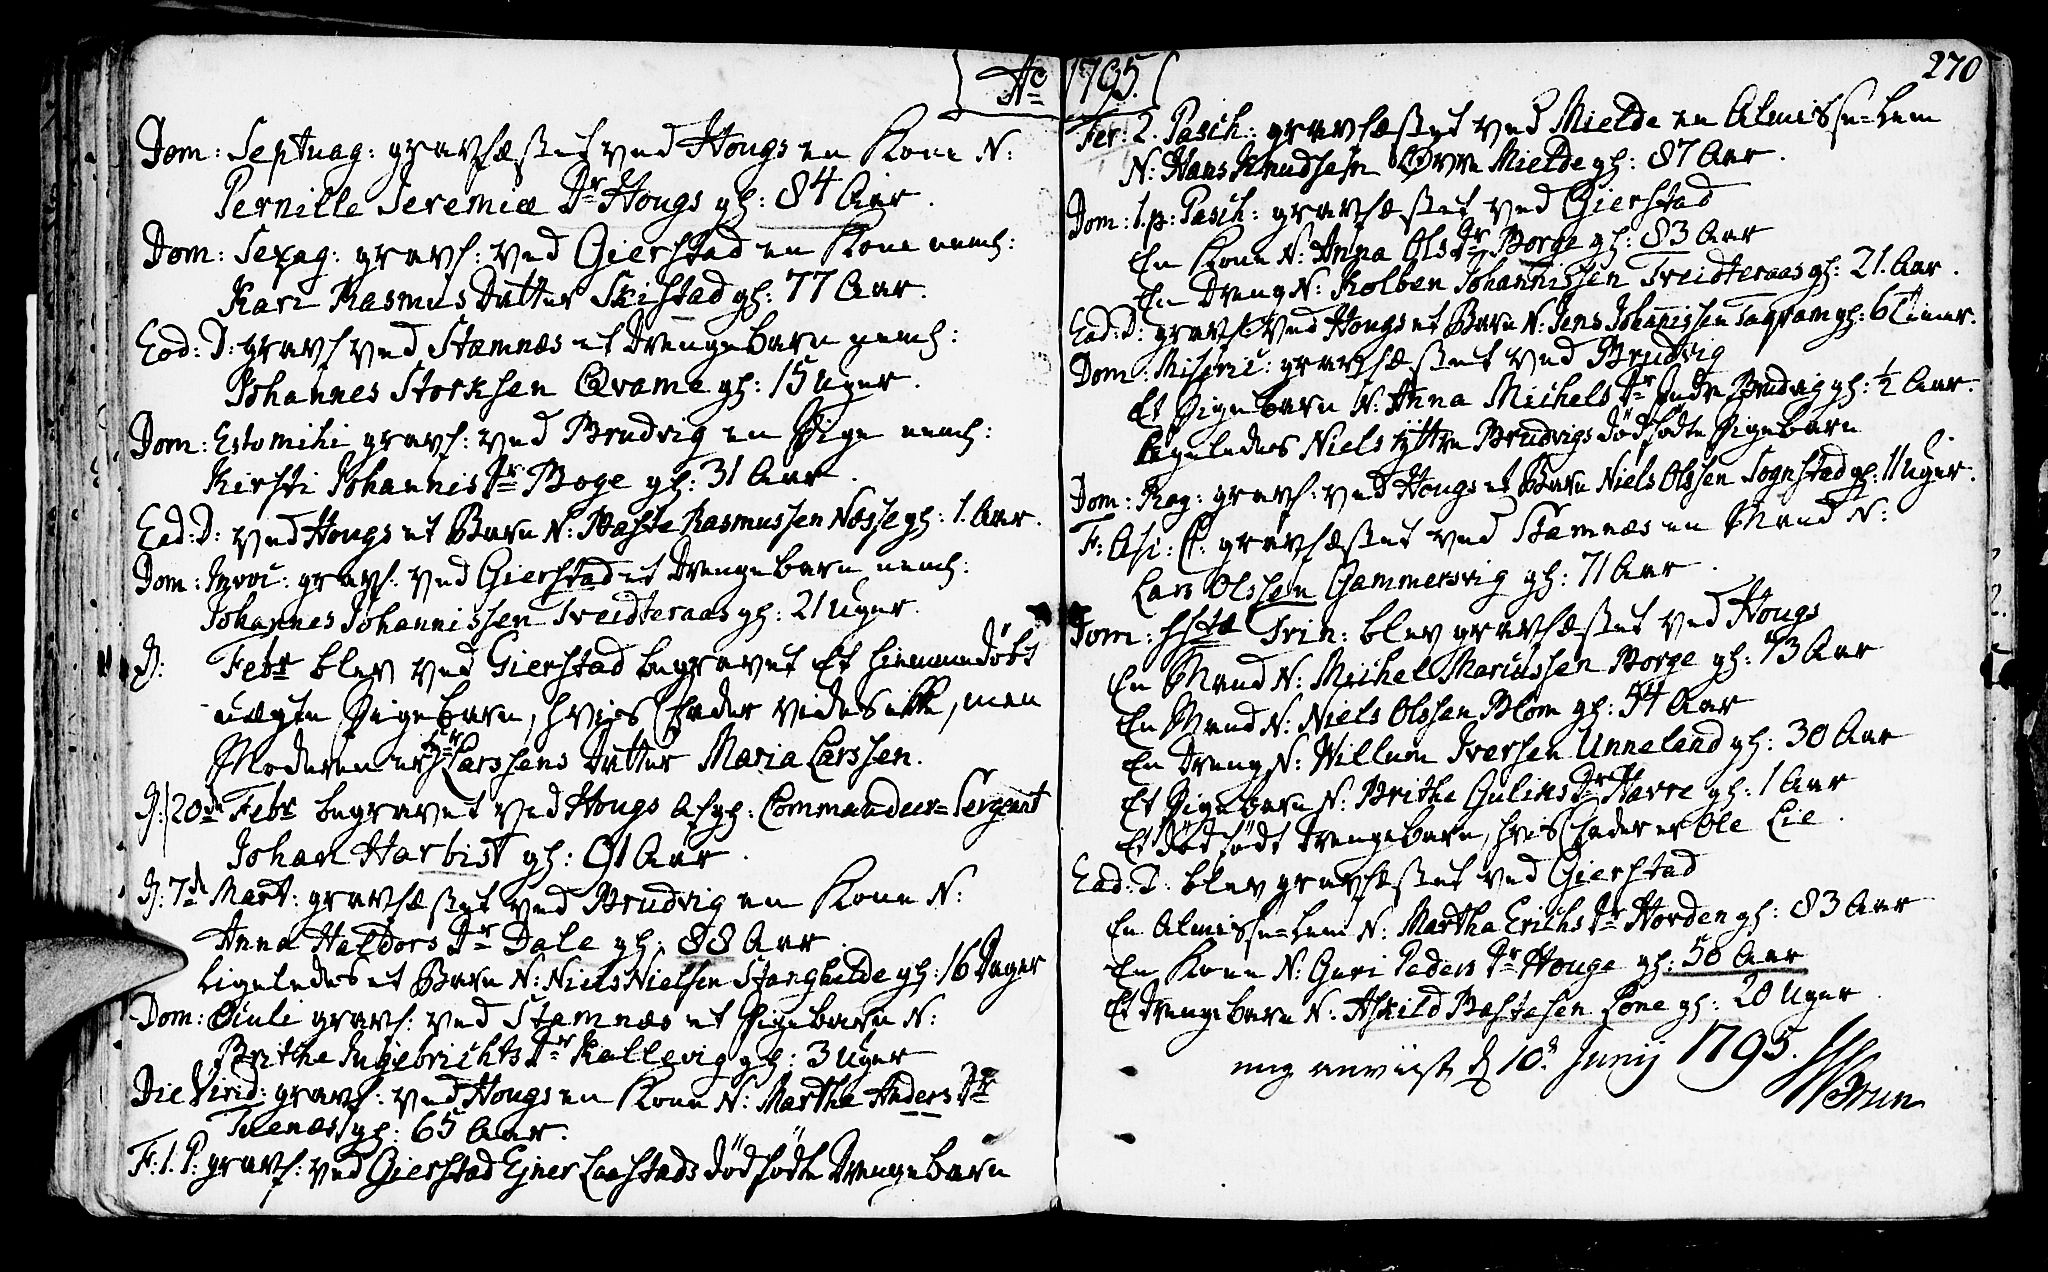 Ao 1795.
270
Dom: Septuag: gravfæstet ved Hougs en Kone N:
Pernille Jeremiæ Dr Hougs gl: 84 Aar.
Dom: Sexag: gravf: ved Gierstad en Kone neml:
Kari Rasmus Datter Skistad gl: 77 Aar.
Eod: D: gravf ved Stamnæs et Drengebarn neml:
Johannes Storksen Qvame gl: 15 Uger.
Dom: Estomihi gravf: ved Brudvig en Pige neml:
Kirsti Johannis Dr Boge gl: 31 Aar.
Ead: D: ved Hougs et Barn N: Baste Rasmussen Nesse gl: 1. Aar.
Dom: Invoc: gravf: ved Gierstad et Drengebarn neml:
Johannes Johannissen Treidteraas gl: 21 Uger.
D: Febr blev ved Gierstad begravet Et hiemmedöbt
uægte Pigebarn, hvis Fader vides ikke, men
Moderen er Hr Larssens Datter Maria Larssen.
D: 20de Febr begravet ved Hougs Afg: Commandeur=Sergeant
Johan Harbist gl: 91 Aar.
D: 7de Mart: gravfæstet ved Brudvig en Kone N:
Anna Haldors Dr Dale gl: 88 Aar.
Ligeledes et Barn N: Niels Nielsen Stanghelde gl: 16 Dager
Dom: Oculi gravf: ved Stamnæs et Pigebarn N:
Brithe Ingebrichts Dr Kallevig gl: 3 Uger
Die Virid: gravf: ved Hougs en Kone N: Martha Anders Dr
Tuenæs gl: 65 Aar.
F: 1. P: gravf: ved Gierstad Ejner Laastads dödfödte Drengebarn
Fer: 2. Pasch: gravfæstet ved Mielde en Almisse=Lem
N: Hans Knudsen Øvre Mielde gl: 87 Aar.
Dom: 1. p: Pasch: gravfæstet ved Gierstad
En Kone N: Anna Ols Dr Borge gl: 83 Aar
En Dreng N: Kolben Johannissen Treidteraas gl: 21. Aar.
Ead: D: gravf: ved Hougs et Barn N: Jens Johannissen gl: 6 Timer.
Dom: Miseric: gravfæstet ved Brudvig
Et Pigebarn N: Anna Michels Dr Indre Brudvig gl: ½ Aar.
Ligeledes Niels Yttre Brudvigs dödfödte Pigebarn
Dom: Rog: gravf: ved Hougs et Barn Niels Olssen Sognstad gl: 11 Uger.
F: Asc: C: gravfæstet ved Stamnæs en Mand N:
Lars Olssen Gammersvig gl: 71 Aar.
Dom: Trin: blev gravfæstet ved Hougs
En Mand N: Michel Marcussen Borge gl: 73 Aar
En Mand N: Niels Olssen Blom gl: 54 Aar
En Dreng N: Willum Iversen Unneland gl: 30 Aar
Et Pigebarn N: Brithe Guliks Dr Havre gl: 1 Aar
Et Dödfödt Drengebarn, hvis Fader er Ole Lie.
Ead: D: blev gravfæstet ved Gierstad
En Almisse=Lem N: Martha Erichs Dr Horden gl: 83 Aar
En Kone N: Guri Peders Dr Houge gl: 58 Aar
Et Drengebarn N: Askild Bastesen Lone gl: 20 Uger.
mig anviist d 10de Junij 1795.